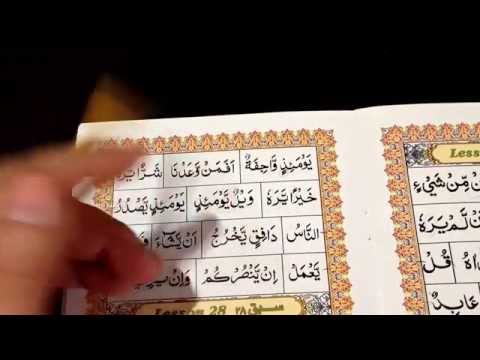 يَوْمَئِذٍ وَّاجِفَةٌ اَفَمَنْ وَّعَدْنَا شَرًّا يَّرَهٗ
خَيْرًا يَّرَهٗ وَيْلٌ يَّوْمَئِذٍ يَوْمَئِذٍ يَّصْدُرُ
النَّاسُ دَافِقٍ يَّخْرُجُ اَنْ يَّشَآءَ
يَّعْمَلْ اِنْ يَّنْصُرْكُمْ وَاِنْ
Lesson 28 سبق ۲۸
Less
مِّنْ شَيْءٍ
لَّمْ يَرَهٗ
قُلْ
عَابِدٌ